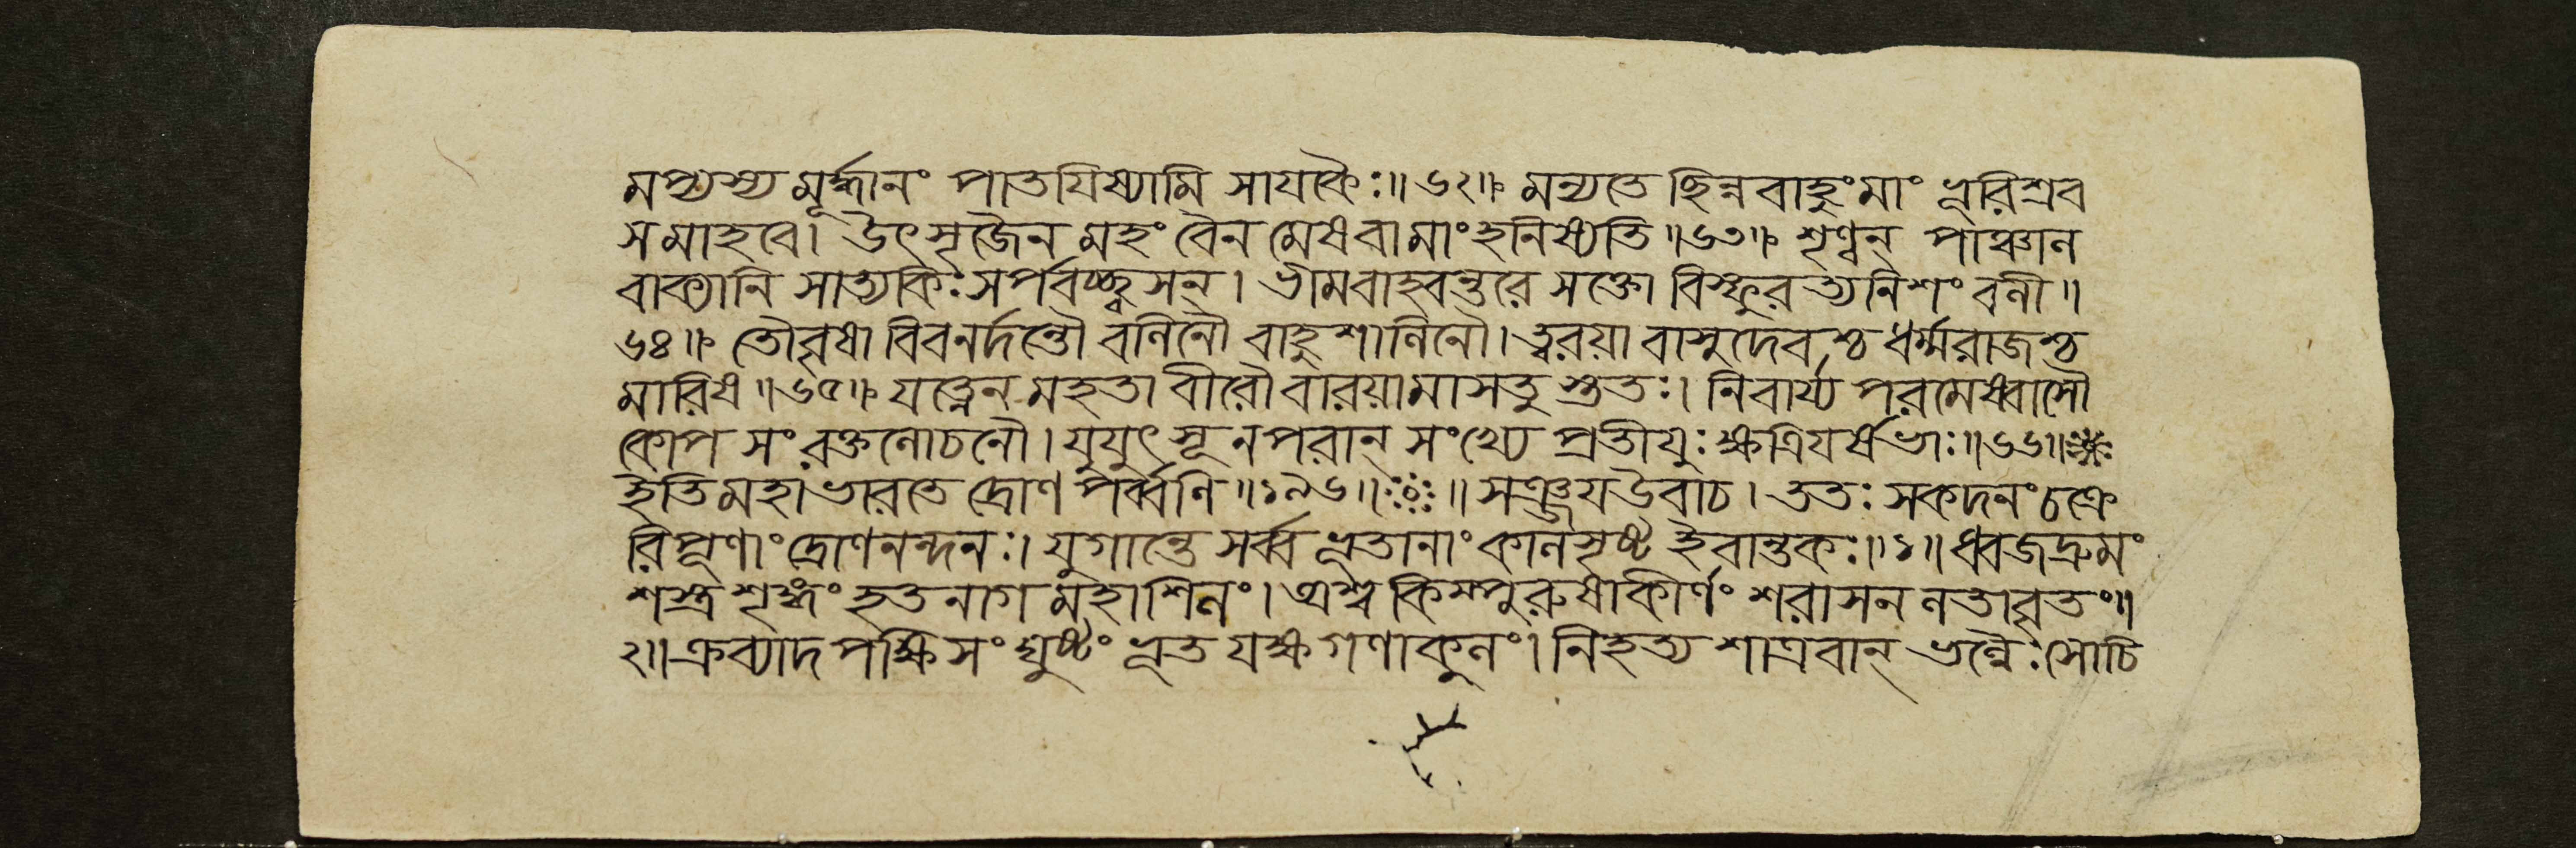 মপ্যস্য মূর্দ্ধানং পাতযিষ্যামি সাযকৈঃ॥৬২॥ মন্যতে ছিন্নবাহুংমাং ভূরিশ্রব
সমাহবে। উৎসৃজৈনমহংবৈনমেষবামাংহনিষ্যতি॥৬৩॥ শৃণ্বন্ পাঞ্চাল
বাক্যানি সাত্যকিঃসর্পবচ্ছ্বসন্। ভীমবাহ্বন্তরে সক্তো বিস্ফুরত্যনিশংবলী॥
৬৪॥ তৌবৃষাবিবনর্দন্তৌ বলিনৌ বাহুশালিনৌ। ত্বরয়া বাসুদেবশ্চ ধর্ম্মরাজশ্চ
মারিষ॥৬৫॥ যত্নেন মহতা বীরৌ বারয়ামাসতুস্তুতঃ। নিবার্য্য পরমেষ্বাসৌ
কোপ সংরক্তলোচনৌ। যুযুৎসূনপরান্ সংখ্যে প্রতীযুঃক্ষত্রিযর্ষভাঃ॥৬৬॥
ইতিমহাভারতে দ্রোণপর্ব্বণি॥১৯৬॥ ॥ সঞ্জযউবাচ। ততঃ সকদনং চক্রে
রিপূণাংদ্রোণনন্দনঃ। যুগান্তে সর্ব্বভূতানাং কালসৃষ্ট ইবান্তকঃ॥১॥ ধ্বজদ্রুমং
শস্ত্রশৃঙ্গং হতনাগমহাশিলং। অশ্বকিম্পুরুষাকীর্ণং শরাসনলতাবৃতং॥
২॥ ক্রব্যাদপক্ষিসংঘুষ্টং ভূতযক্ষগণাকুলং। নিহত্য শাত্রবান্ ভল্লৈঃসোচি